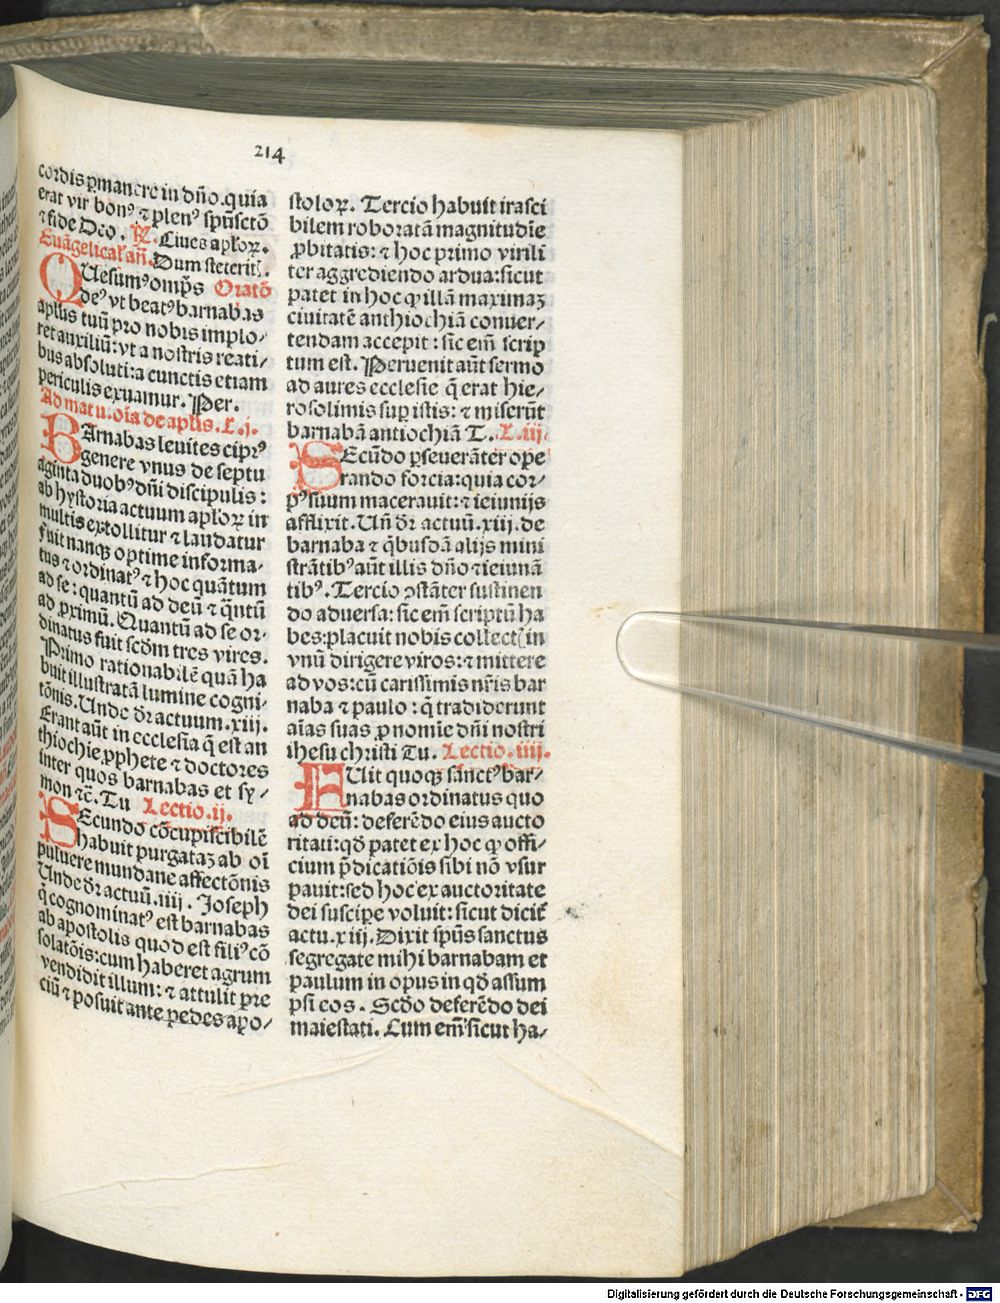 214
cordis ꝑmanere in dño. quia
erat vir bonꝰ ⁊ plenꝰ spũsctõ
⁊ fide Deo. ℟. Ciues apłoꝝ.
Euãgelicał. añ. Dum steterit̃.
QUesumꝰ omp̃s Oratõ
deꝰ vt beatꝰ barnabas
aplūs tuũ pro nobis implo⸗
ret auxiliũ: vt a nostris reati⸗
bus absoluti: a cunctis etiam
periculis exuamur. Per.
Ad matu. oĩa de aplīs. L. j.
BArnabas leuites ciprꝰ
genere vnus de septu
aginta duobꝰ dñi discipulis:
ab hystoria actuum apłoꝝ in
multis extollitur ⁊ laudatur
Fuit nanqꝫ optime informa⸗
tus ⁊ ordinatꝰ ⁊ hoc quãtum
ad se: quantũ ad deũ ⁊ q̃ntũ
ad ꝓximũ. Quantũ ad se or⸗
dinatus fuit scd̃m tres vires.
Primo rationabilẽ quã ha
buit illustratã lumine cogni⸗
tõnis. Unde dr̃ actuum. xiij.
Erant aũt in ecclesia q̃ est an
thiochie ꝓphete ⁊ doctores
inter quos barnabas et sy⸗
mon ⁊c̃. Tu Lectio. ij.
SEcundo cõcupiscibilẽ
habuit purgataꝫ ab oĩ
puluere mundane affectõnis
Unde dr̃ actuũ. iiij. Joseph
q̃ cognominatꝰ est barnabas
ab apostolis quod est filiꝰ cõ
solatõis: cum haberet agrum
vendidit illum: ⁊ attulit pre
ciũ ⁊ posuit ante pedes apo⸗
stoloꝝ. Tercio habuit irasci
bilem roboratã magnitudĩe
ꝓbitatis: ⁊ hoc primo virili
ter aggrediendo ardua: sicut
patet in hoc ꝙ illã maximaꝫ
ciuitatẽ anthiochiã conuer⸗
tendam accepit: sic em̃ scrip
tum est. Peruenit aũt sermo
ad aures ecclesie q̃ erat hie⸗
rosolimis suꝑ istis: ⁊ miserũt
barnabã antiochiã T. L. iij.
SEcũdo ꝑseuerãter ope
rando forcia: quia cor⸗
pꝰ suum macerauit: ⁊ ieiunijs
afflixit. Uñ dr̃ actuũ. xiij. de
barnaba ⁊ q̃busdã alijs mini
strãtibꝰ aũt illis dño ⁊ ieiunã
tibꝰ. Tercio ꝯstãter sustinen
do aduersa: sic em̃ scriptũ ha
bes: placuit nobis collectis in
vnũ dirigere viros: ⁊ mittere
ad vos: cũ carissimis nr̃is bar
naba ⁊ paulo: q̃ tradiderunt
aĩas suas ꝓ nomĩe dñi nostri
ihesu christi Tu. Lectio. iiij.
FUit quoqꝫ sanctꝰ bar⸗
nabas ordinatus quo
ad deũ: deferẽdo eius aucto
ritati: qđ patet ex hoc ꝙ offi⸗
cium p̃dicatiõis sibi nõ vsur
pauit: sed hoc ex auctoritate
dei suscipe voluit: sicut dicit̃
actu. xiij. Dixit spũs sanctus
segregate mihi barnabam et
paulum in opus in qđ assum
psi eos. Scđo deferẽdo dei
maiestati. Cum em̃ sicut ha⸗
Digitalisierung gefördert durch die Deutsche Forschungsgemeinschaft - DFG